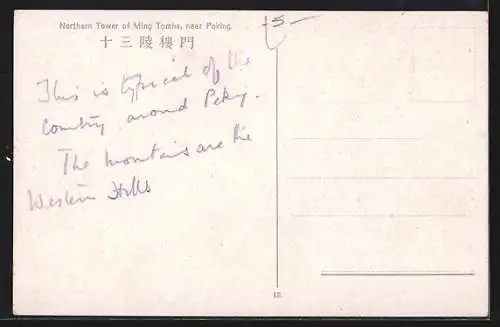 Northern Tower of Ming Tombs, near Peking.
十三陵樓門
5-
This is typical of the
country around Peking.
The mountains are the
Western Hills
12.